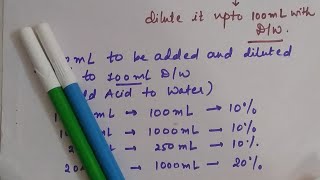 dilute it upto 100mL with
D/W.
mL to be added and diluted
to 100mL D/W
Acid to Water)
→ 100mL → 10%
mL → 1000mL → 10%
mL → 250mL → 10%
mL → 1000mL → 20%